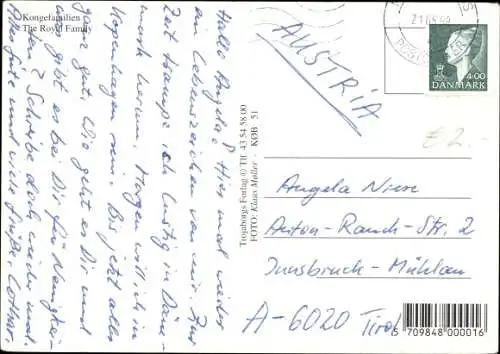 Kongefamilien
The Royal Family
Hallo Angela! Hier mal wieder
ein Lebenszeichen von mir. Zur
Zeit trampe ich lustig in Däne-
mark herum. Morgen will ich in
Kopenhagen sein. Bis jetzt alles
ganz gut. Wie geht es Dir und
was gibt es bei Dir für Neuigkei-
ten? Schreibe doch wieder mal.
Alles Gut und viele Grüße, Lothar.
Trojaborgs Forlag © Tlf. 43 54 58 00
FOTO: Klaus Møller - KØB 51
AUSTRIA
4.00
DANMARK
€ 2.-
Angela Niese
Anton-Rauch-Str. 2
Innsbruck-Mühlau
A-6020 Tirol
5 709848 000016